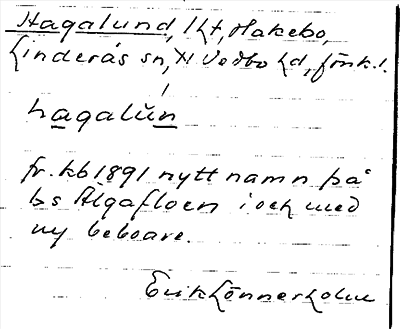 Hagalund, lht, Hakebo,
Linderås sn, N Vedbo hd, Jönk. l.
hagalun
fr. kb 1891 nytt namn på
bs Älgafloen i och med
ny beboare.
Erik Lönnerholm